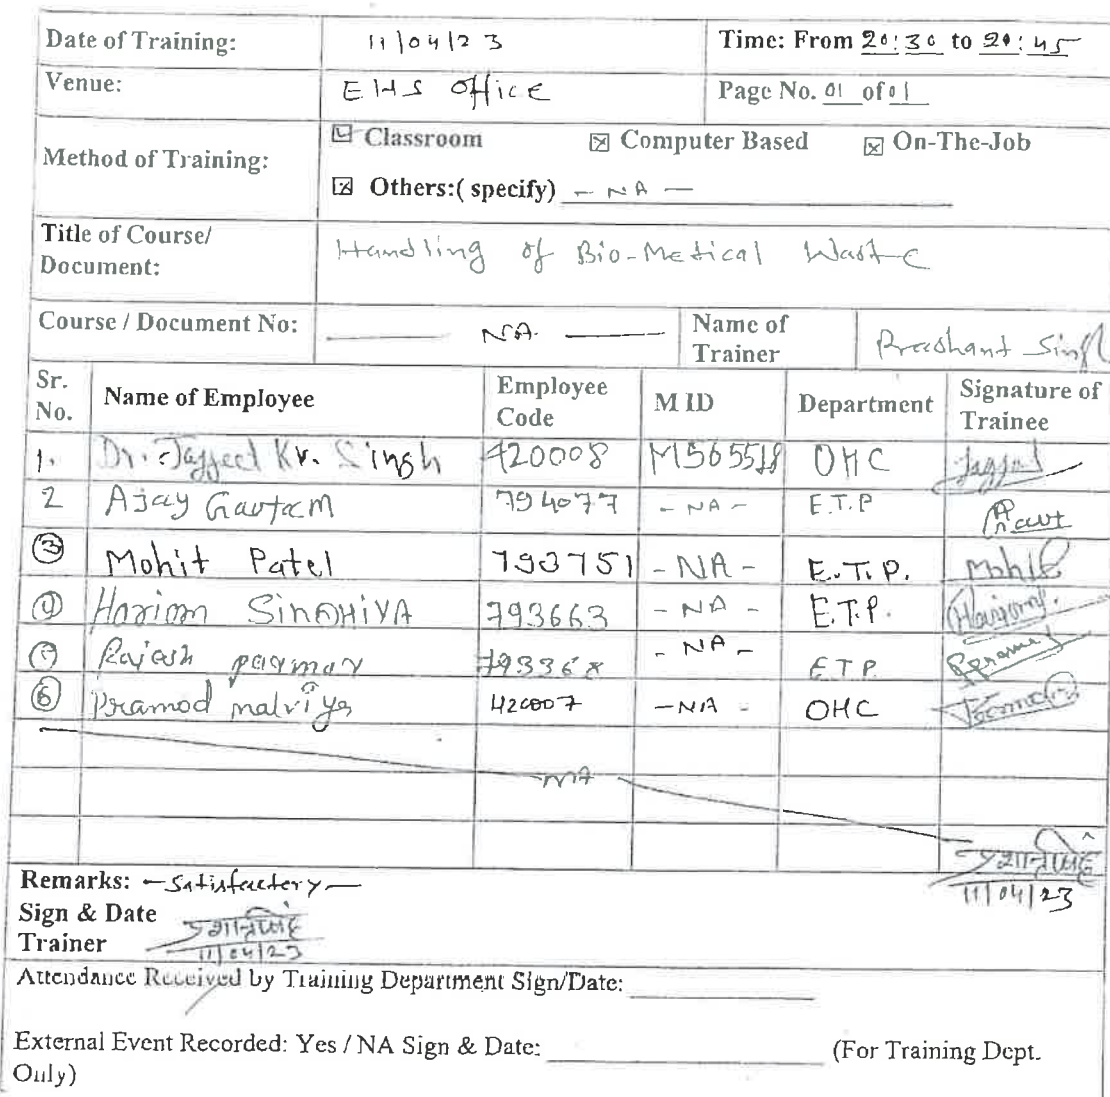 Date of Training: 11/04/23 Time: From 20:30 to 20:45
Venue: EHS office Page No. 01 of 01
Method of Training: Classroom Computer Based On-The-Job
Others:( specify) - NA -
Title of Course/ Document: Handling of Bio-Medical Waste
Course / Document No: NA. Name of Trainer Prashant Singh
Sr. No. Name of Employee Employee Code M ID Department Signature of Trainee
1. Dr. Kr. Singh 420008 OHC
2 Ajay Gautam 794077 - NA - E.T.P
3 Mohit Patel 793751 - NA - E.T.P. Mohit
4 Hariom SINDHIYA 793663 - NA - E.T.P. Hariom
Rajesh parmar - NA - E.T.P.
6 Pramod malviya 420007 - NA - OHC
NA
11/04/23
Remarks: - Satisfactory -
Sign & Date
Trainer 11/04/23
Attendance Received by Training Department Sign/Date:
External Event Recorded: Yes / NA Sign & Date: (For Training Dept.
Only)